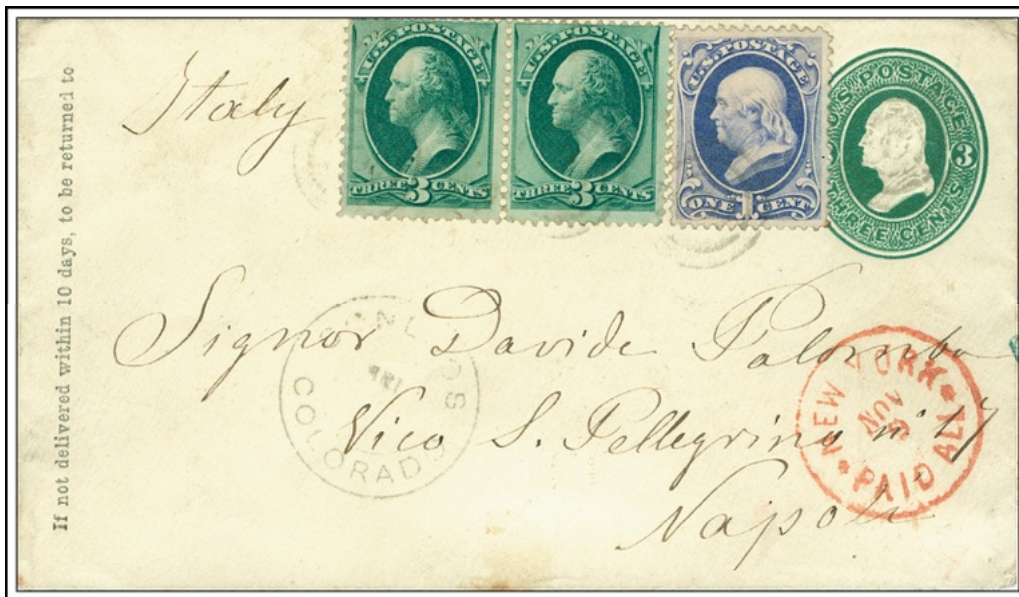 If not delivered within 10 days, to be returned to
Italy
U.S. POSTAGE
THREE 3 CENTS
U.S. POSTAGE
THREE 3 CENTS
U.S. POSTAGE
ONE 1 CENT
U.S. POSTAGE
3
THREE CENTS
Signor Davide Palomba
Vico S. Pellegrino nº 17
Napoli
COLORADO
NEW YORK
NOV
PAID ALL